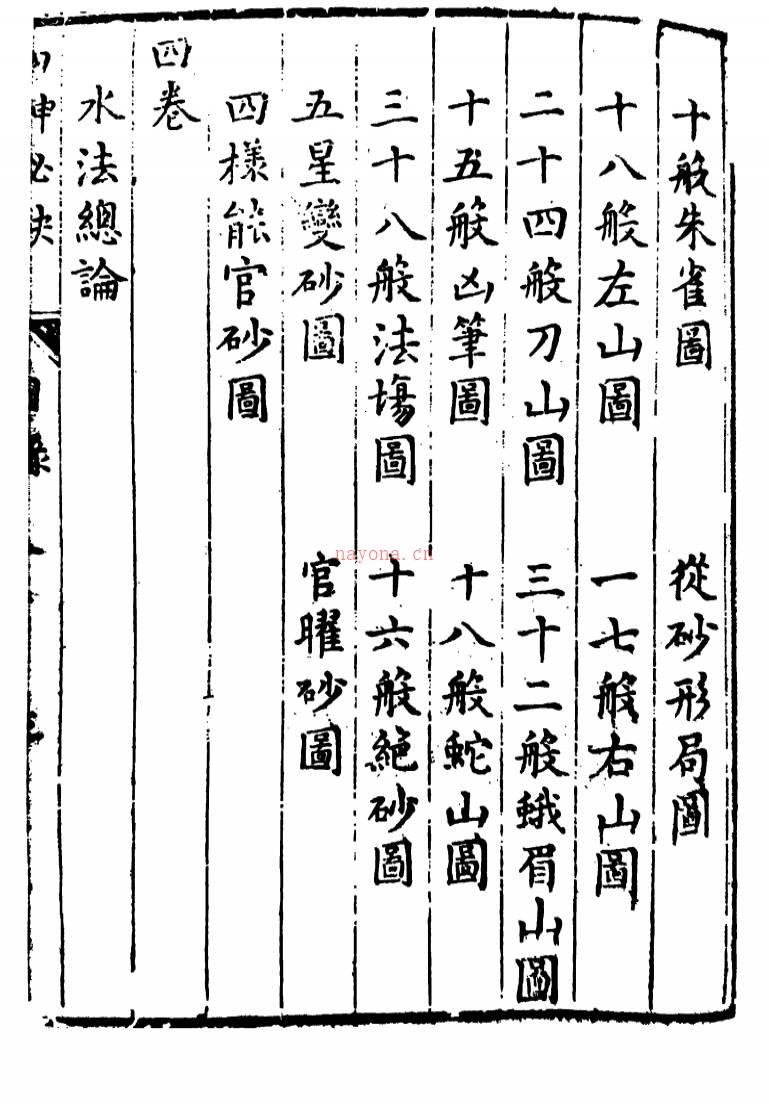 十般朱雀圖 從砂形局圖
十八般左山圖 一七般右山圖
二十四般刀山圖 三十二般蛾眉山圖
十五般凶筆圖 十八般蛇山圖
三十八般法場圖 十六般絕砂圖
五星變砂圖 官曜砂圖
四樣能官砂圖
四卷
水法總論
nayona.cn